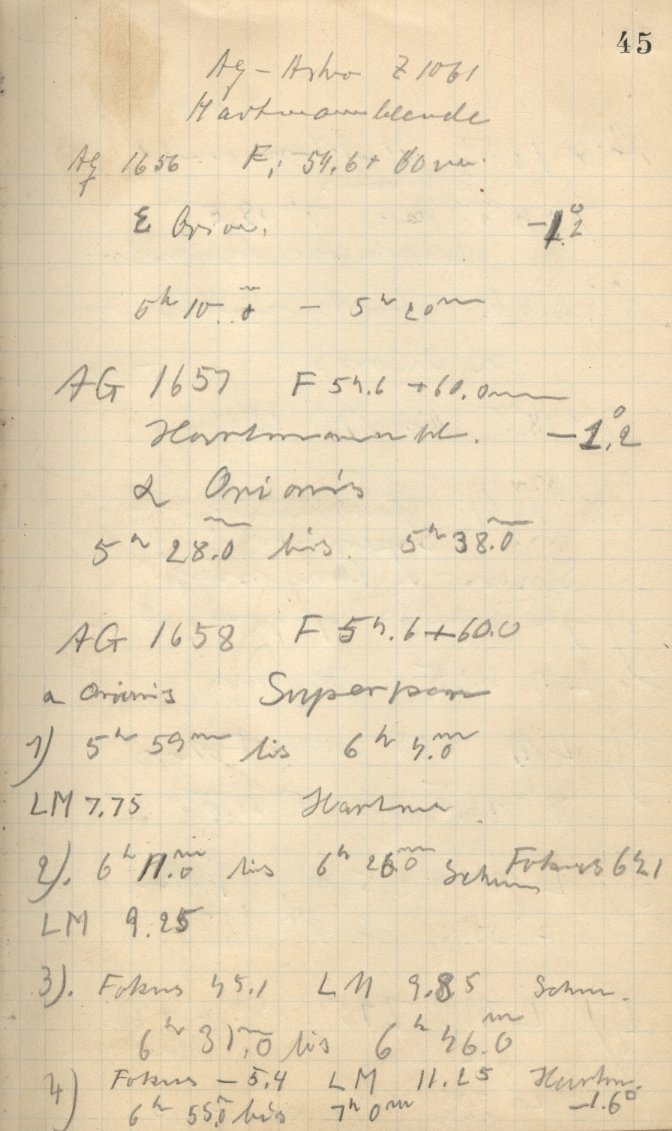 45
Ag-Astro Z 1061
Hartmannblende
Ag 1656 F. 54.6+60
ε Orion. -1.°2
5h 10.m0 - 5h 20m
AG 1657 F 54.6 +60.0mm
Hartmannbl. -1.°2
α Orionis
5h 28.m0 bis 5h 38.m0
AG 1658 F 54.6+60.0
α Orionis Superpan
1) 5h 59m bis 6h 4.m0
LM 7.75 Hartm
2). 6h 11.m0 bis 6h 26.m0 Schum Fokus
LM 9.25
3). Fokus 45.1 LM 9.85 Schum.
6h 31.m0 bis 6h 46.m0
4) Fokus -5.4 LM 11.25 Hartm.
6h 55.m0 bis 7h 0m -1.6°